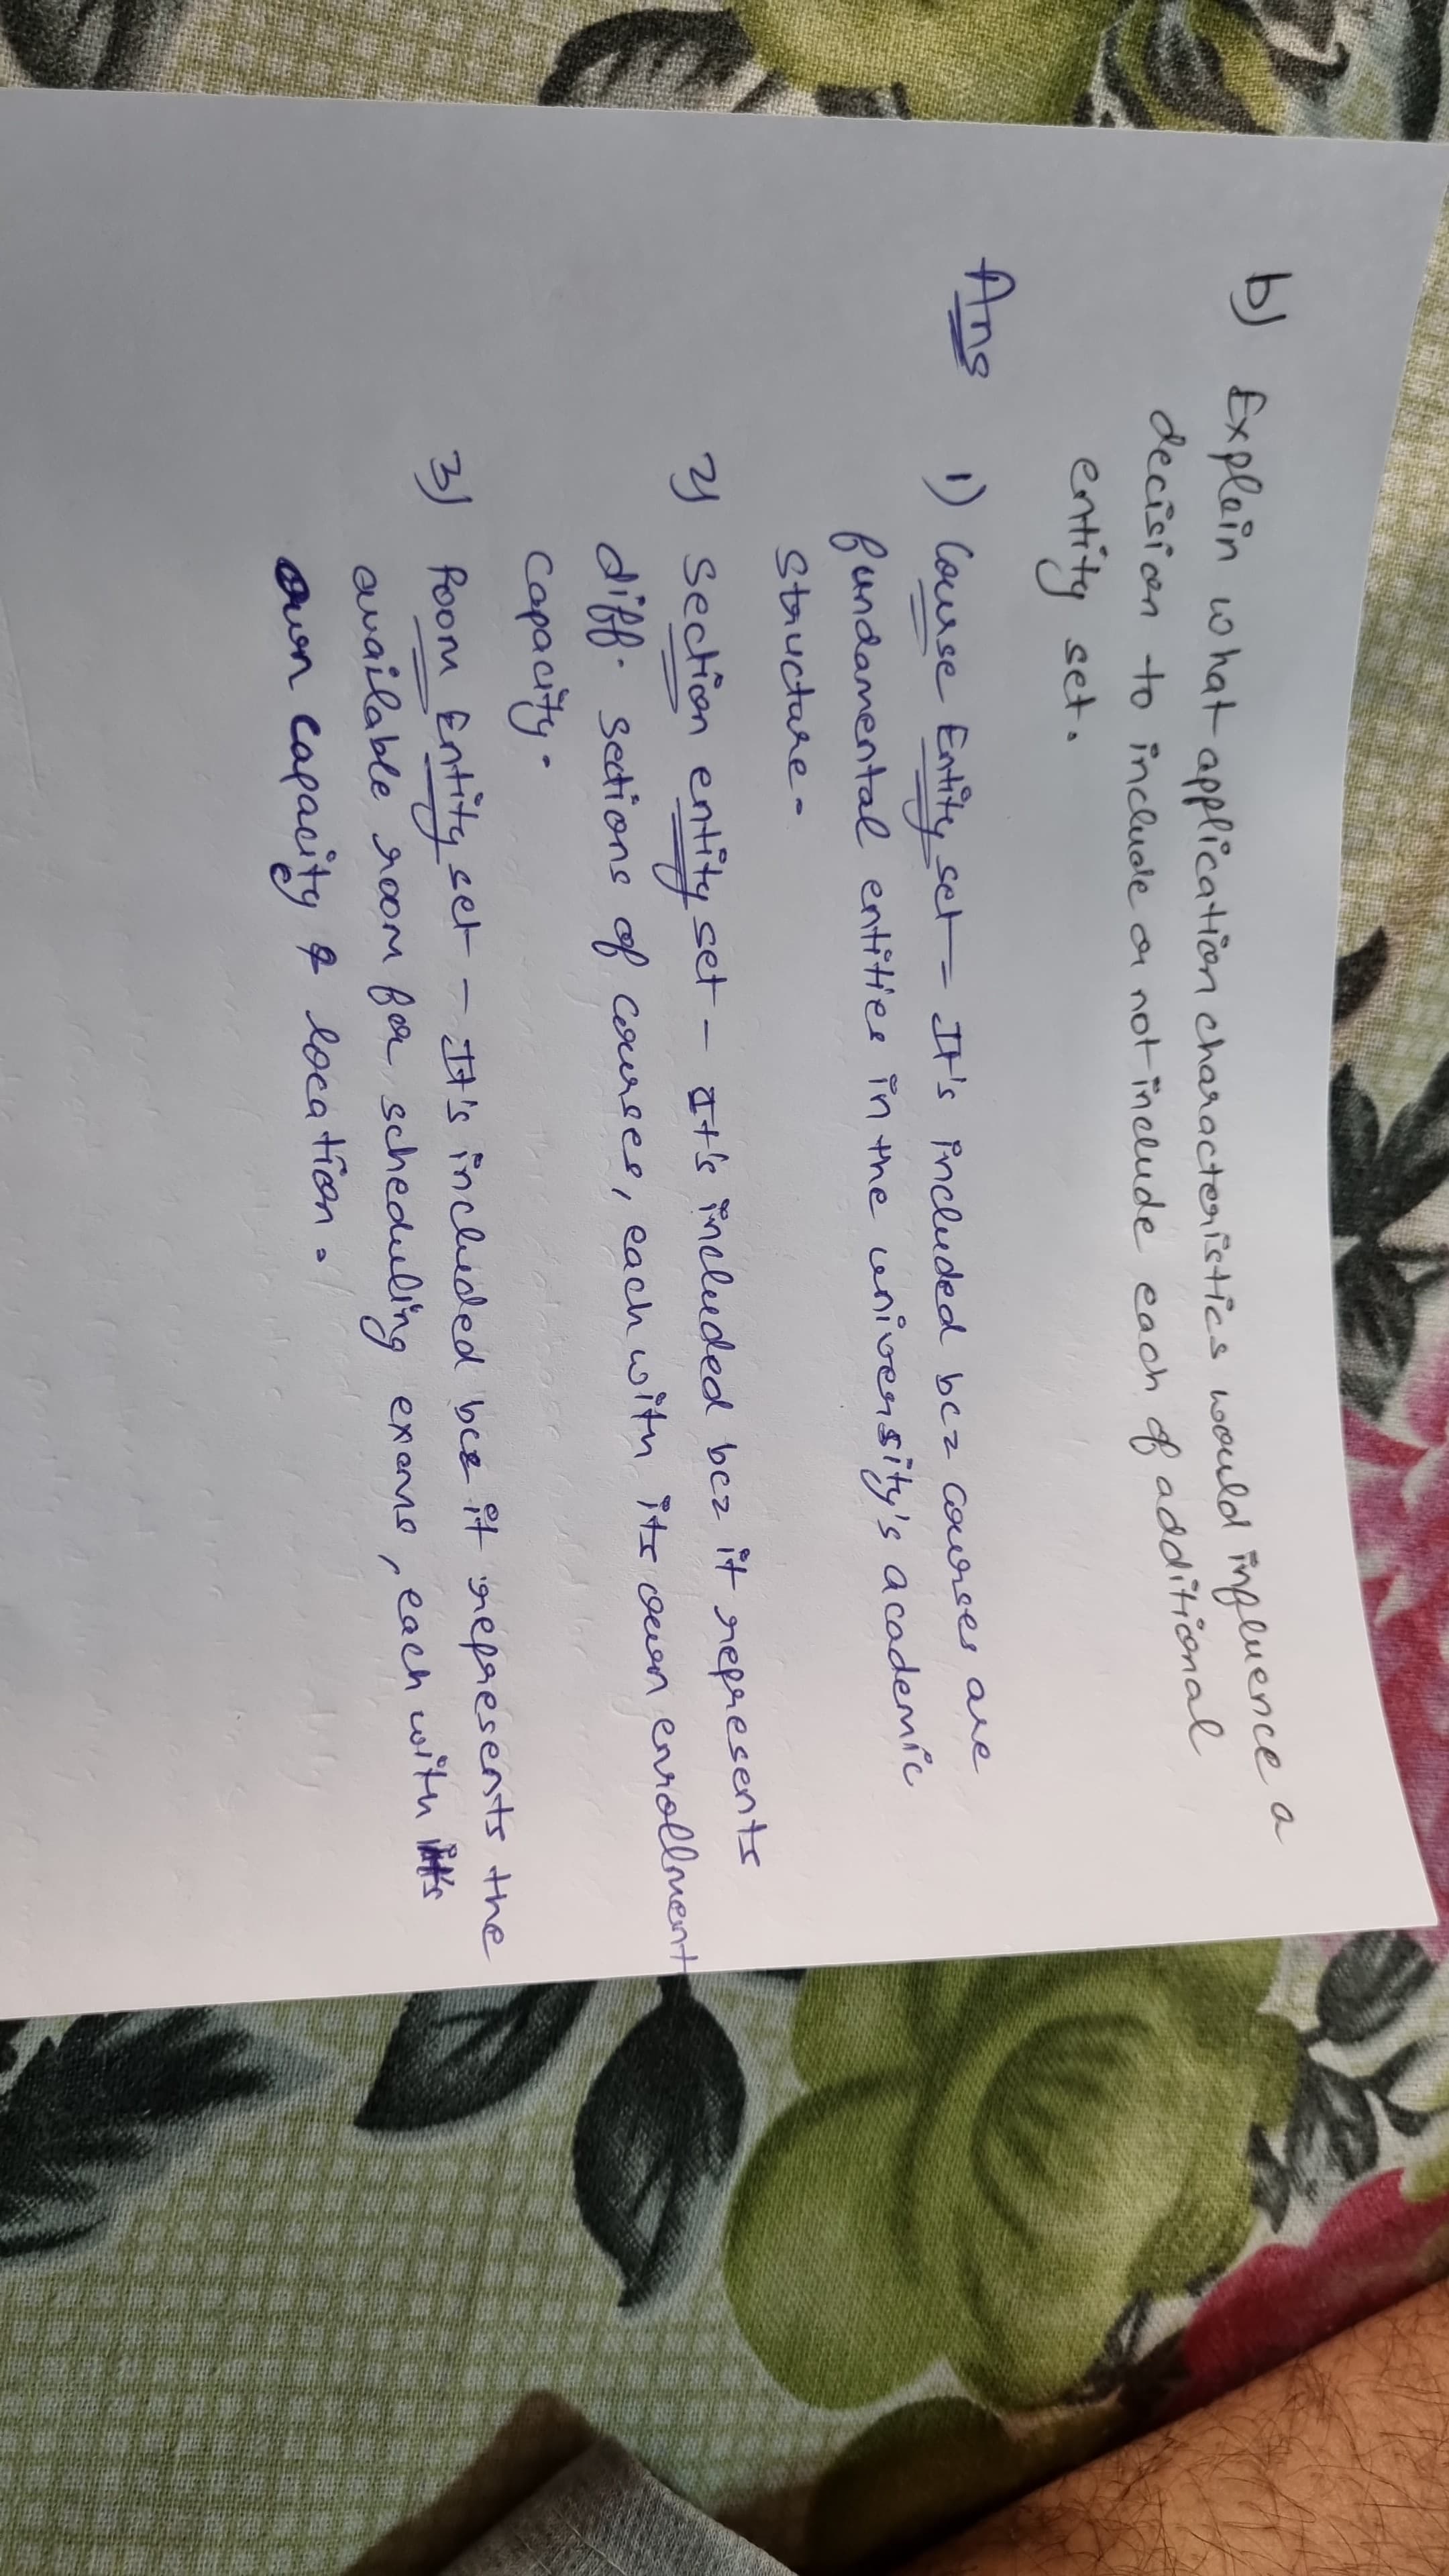 b) Explain what application characteristics would influence a
decision to include or not include each of additional
entity set.
Ans 1) Course Entity set - It's included bcz courses are
fundamental entities in the university's academic
structure.
2) Section entity set - It's included bcz it represents
diff. sections of courses, each with its own enrollment
capacity.
3) Room Entity set - It's included bcz it represents the
available room for scheduling exams, each with it's
own capacity & location.